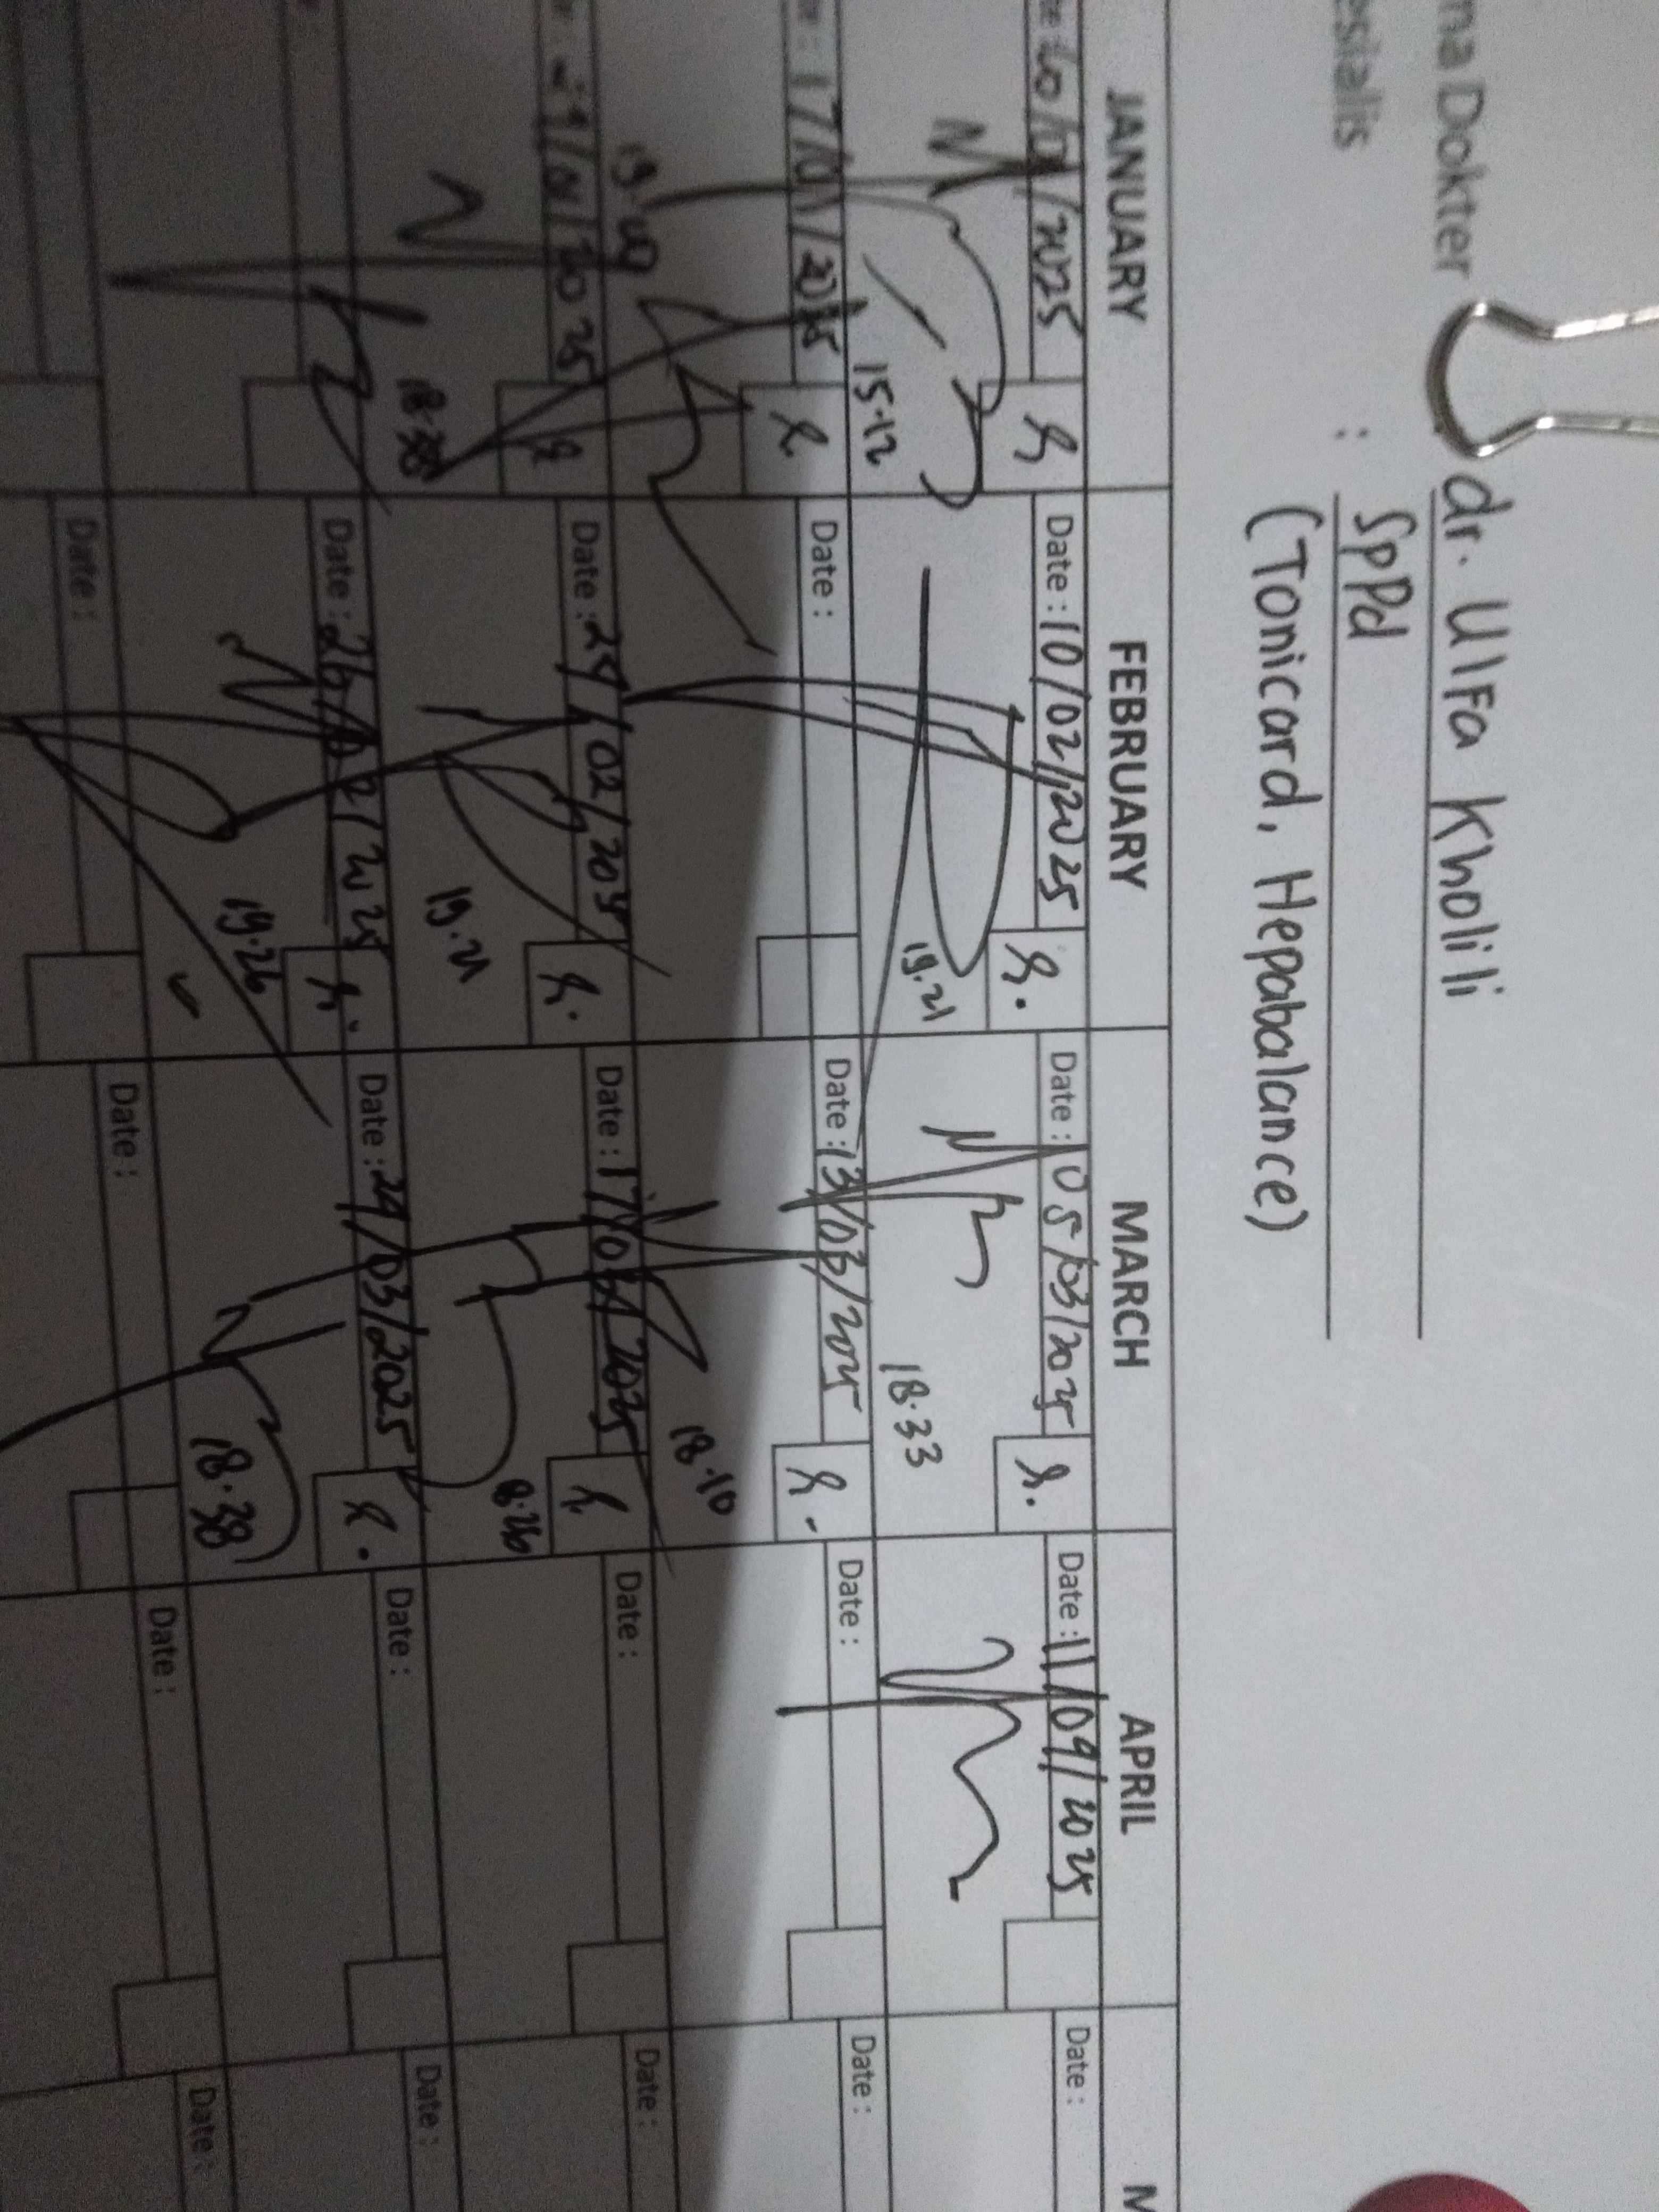 na Dokter dr. Ulfa Kholili
esialis : SpPd
(Tonicard, Hepabalance)
JANUARY FEBRUARY MARCH APRIL M
/2025 Date : 10/02/2025 Date : 05/03/2025 Date : 11/04/2025 Date :
15.12 19.21 18.33
: 17/01/2025 Date : Date : 13/03/2025 Date : Date :
18.10
/01/2025 Date : 24/02/2025 Date : 17/03/2025 Date : Date :
18.38 19.21
Date : 26/02/2025 Date : 24/03/2025 Date : Date :
19.26 18.38
Date : Date : Date : Date :